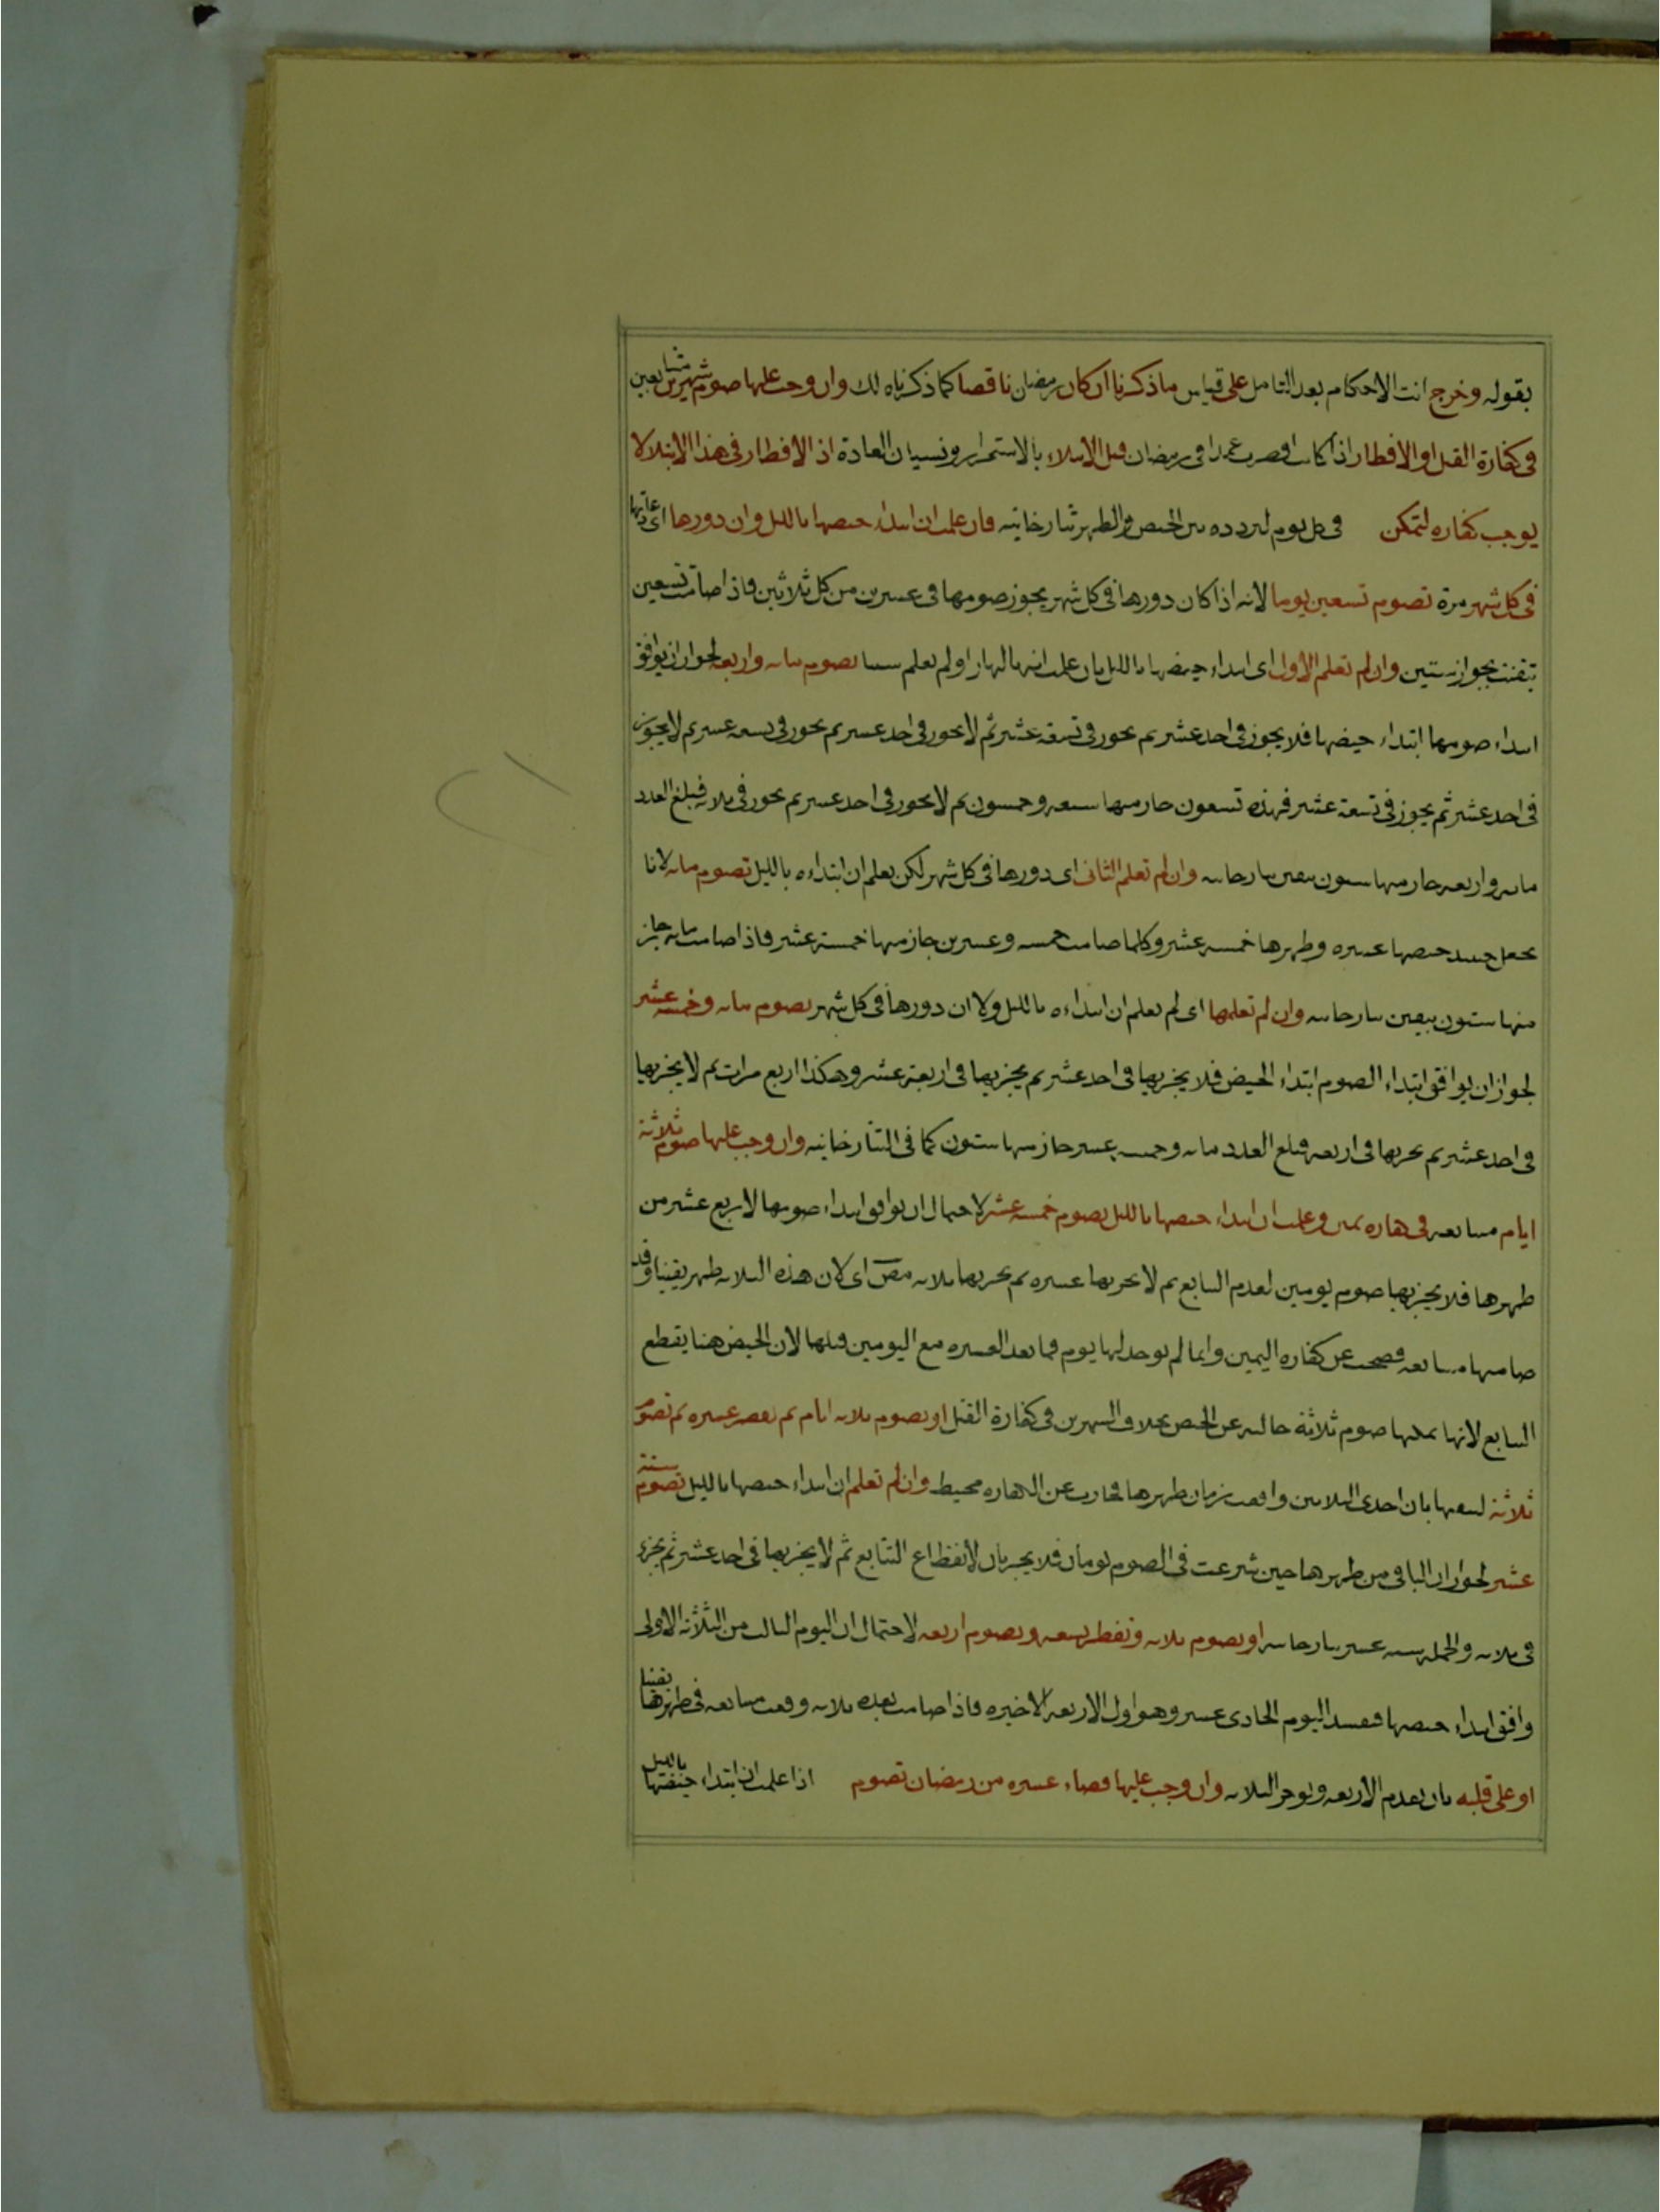 بقوله وخرج انت الاحكام بعد التامل على قياس ماذكرنا ان كان رمضان ناقصا كما ذكرناه لك وان وجب عليها صوم شهرين متتابعين
فى كفارة القتل او الافطار اذا كانت افطرت عمدا فى رمضان قبل الابتلاء بالاستمرار ونسيان العادة اذ الافطار فى هذا الابتلا لا
يوجب كفاره لتمكن فى كل يوم لتردده بين الحيض والطهر تتارخانيه فان علمت ان ابتداء حيضها بالليل وان دورها اى عادتها
فى كل شهر مرة تصوم تسعين يوما لانه اذا كان دورها فى كل شهر يجوز صومها فى عشرين من كل ثلاثين فاذا صامت تسعين
تيقنت بجواز ستين وان لم تعلم الاول اى ابتداء حيضها بالليل بان علمت انه بالنهار او لم تعلم شيئا تصوم مائه واربعه لجواز ان يوافق
ابتداء صومها ابتداء حيضها فلا يجوز فى احد عشر ثم يجوز فى تسعة عشر ثم لا يجوز فى احد عشر ثم يجوز فى تسعه عشر ثم لا يجوز
فى احد عشر ثم يجوز فى تسعة عشر فهذه تسعون جاز منها سبعه وخمسون ثم لا يجوز فى احد عشر ثم يجوز فى ثلاثه فبلغ العدد
مائه واربعه جاز منها ستون بيقين تتارخانيه وان لم تعلم الثانى اى دورها فى كل شهر لكن تعلم ان ابتداءه بالليل تصوم مائه لانا
نجعل حينئذ حيضها عشره وطهرها خمسه عشر وكلما صامت خمسه وعشرين جاز منها خمسة عشر فاذا صامت مائه جاز
منها ستون بيقين تتارخانيه وان لم تعلمها اى لم تعلم ان ابتداءه بالليل ولا ان دورها فى كل شهر تصوم مائه وخمسه عشر
لجواز ان يوافق ابتداء الصوم ابتداء الحيض فلا يجزيها فى احد عشر ثم يجزيها فى اربعة عشر وهكذا اربع مرات ثم لا يجزيها
فى احد عشر ثم يجزيها فى اربعه فبلغ العدد مائه وخمسه عشر جاز منها ستون كما فى التتارخانيه وان وجب عليها صوم ثلاثة
ايام متتابعه فى كفاره يمين وعلمت ان ابتداء حيضها بالليل تصوم خمسه عشر لاحتمال ان يوافق ابتداء صومها لاربع عشر من
طهرها فلا يجزيها صوم يومين لعدم التتابع ثم لا يجزيها عشره ثم يجزيها ثلاثه مص اى لان هذه الثلاثه طهر يقينا وقد
صامتها متتابعه فصحت عن كفاره اليمين وانما لم يوخذ لها يوم فما بعد العشره مع اليومين قبلها لان الحيض هنا يقطع
التتابع لانها يمكنها صوم ثلاثة خاليه عن الحيض بخلاف الشهرين فى كفارة القتل او تصوم ثلاثه ايام ثم تفطر عشره ثم تصوم
ثلاثة لتيقنها بان احدى الثلاثين وافقت زمان طهرها فجازت عن الكفاره محيط وان لم تعلم ان ابتداء حيضها بالليل تصوم ستة
عشر لجواز ان الباقى من طهرها حين شرعت فى الصوم يومان فلا يجزيان لانقطاع التتابع ثم لا يجزيها فى احد عشر ثم يجزء
فى ثلاثه والجمله سته عشر تتارخانيه او تصوم ثلاثه وتفطر تسعه وتصوم اربعه لاحتمال ان اليوم الثالث من الثلاثة الاولى
وافق ابتداء حيضها فيفسد اليوم الحادى عشر وهو اول الاربعه الاخيره فاذا صامت بعده ثلاثه وقعت متتابعه فى طهرها يقينا
او على قلبه بان تقدم الاربعه وتوخر الثلاثه وان وجب عليها قضاء عشره من رمضان تصوم اذا علمت ان ابتداء حيضها بالليل